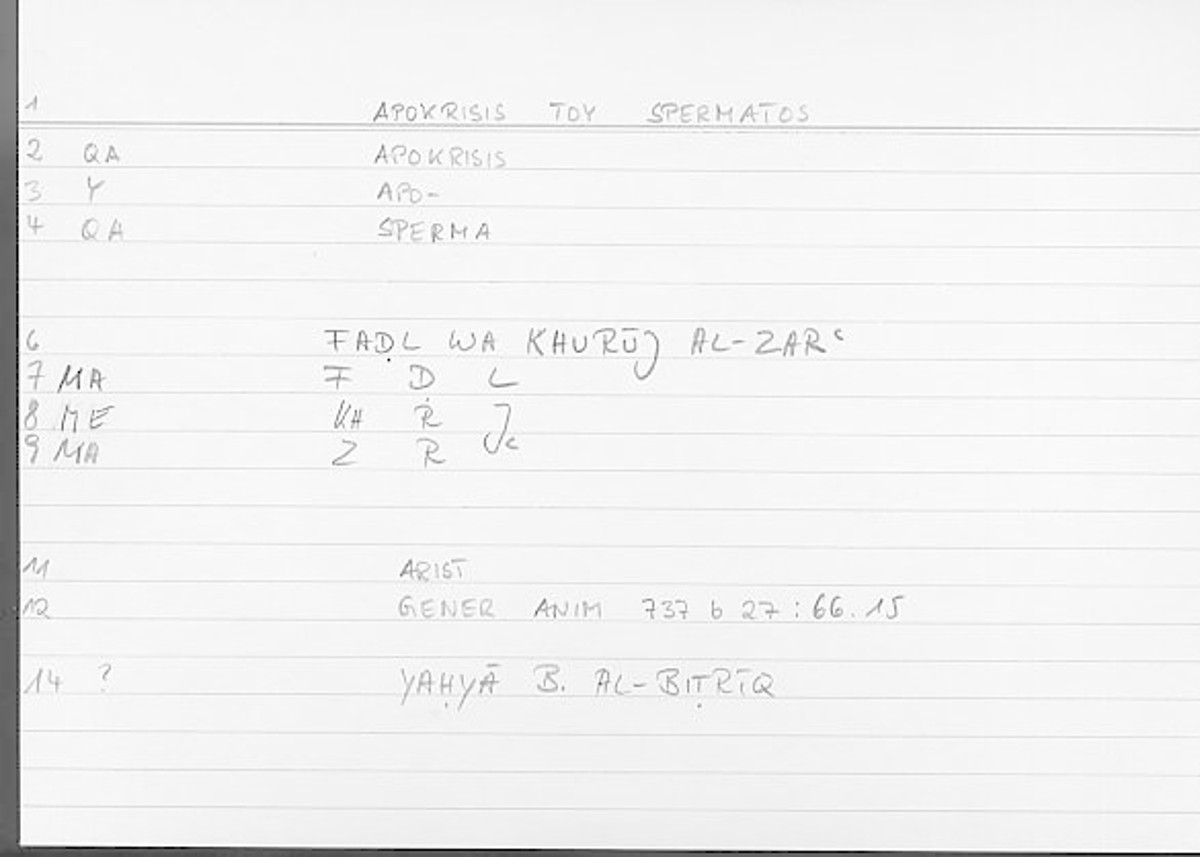 1 APOKRISIS TOY SPERMATOS
2 QA APOKRISIS
3 Y APO-
4 QA SPERMA
6 FAḌL WA KHURŪJ AL-ZARʿ
7 MA F Ḍ L
8 ME KH R J
9 MA Z R ʿ
11 ARIST
12 GENER ANIM 737 b 27 : 66.15
14 ? YAḤYĀ B. AL-BIṬRĪQ